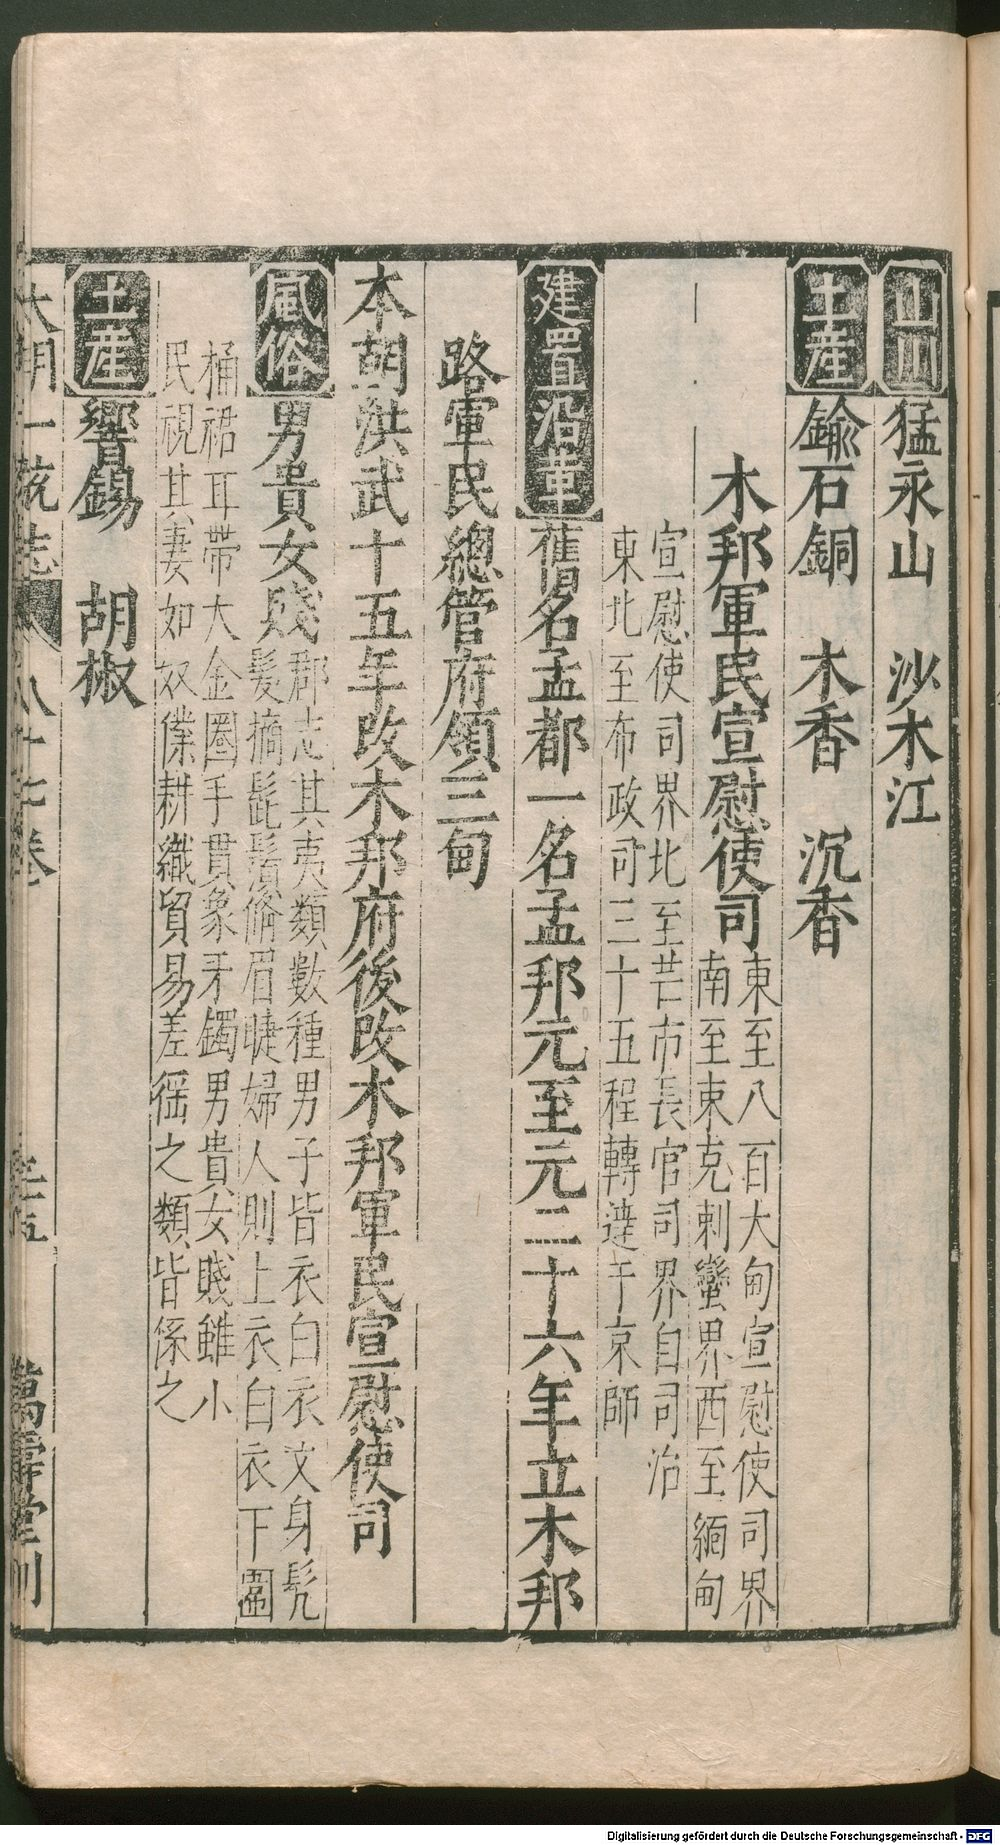 山川猛永山　沙木江
土産鍮石銅　木香　沉香
木邦軍民宣慰使司東至八百大甸宣慰使司界
南至東克剌蠻界西至緬甸
宣慰使司界北至芒市長官司界自司治
東北至布政司三十五程轉達于京師
建置沿革舊名孟都一名孟邦元至元二十六年立木邦
路軍民總管府領三甸
本朝洪武十五年改木邦府後改木邦軍民宣慰使司
風俗男貴女賤郡志其夷類數種男子皆衣白衣文身髡
髮摘髭鬚修眉睫婦人則上衣白衣下圍
桶裙耳帶大金圈手貫象牙鐲男貴女賤雖小
民視其妻如奴僕耕織貿易差徭之類皆係之
土産響錫　胡椒
大明一統志　八十七卷　　萬壽堂刊
Digitalisierung gefördert durch die Deutsche Forschungsgemeinschaft - DFG